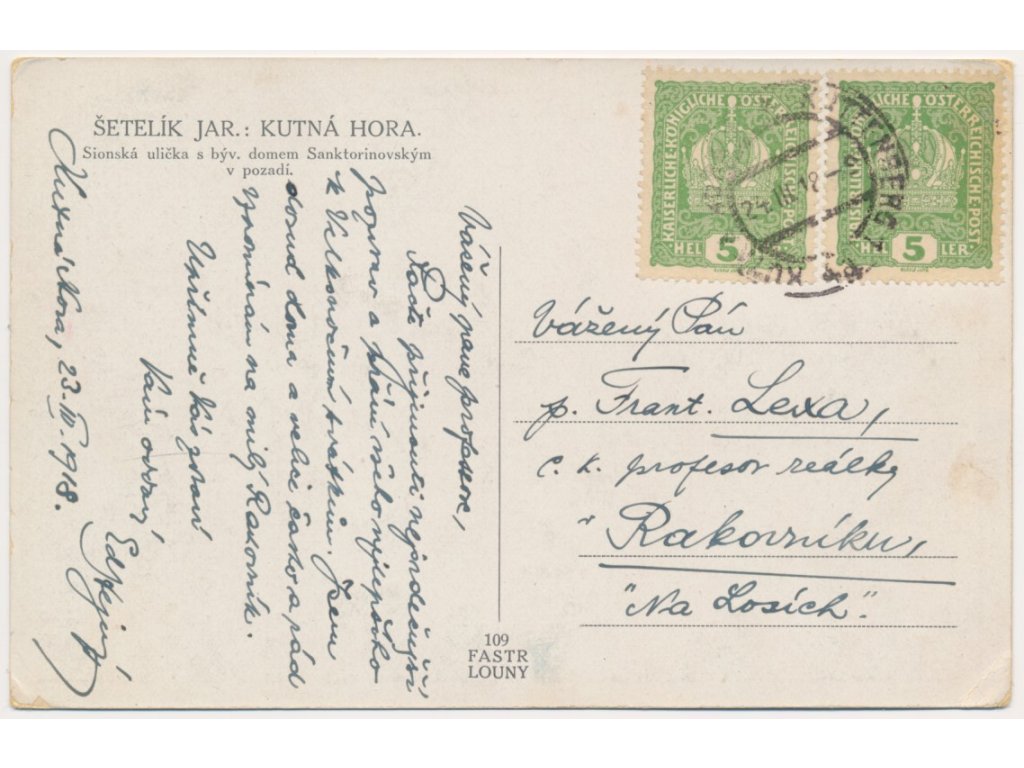 ŠETELÍK JAR.: KUTNÁ HORA.
Sionská ulička s býv. domem Sanktorinovským
v pozadí.
Kutná Hora, 23. III. 1918.
Vážený pane profesore,
Račte přijmouti nejsrdečnější
pozdrav a přání všeho nejlepšího
k Velkonočním svátkům. Jsem
dosud doma a velmi často a rád
vzpomínám na milý Rakovník.
Uctivě Vás zdraví
Vám oddaný
KAISERLICHE KÖNIGLICHE ÖSTERREICHISCHE POST
HEL 5 LER
KAISERLICHE KÖNIGLICHE ÖSTERREICHISCHE POST
HEL 5 LER
KUTTENBERG 1
24. III. 18
KUT
Vážený Pán
p. Frant. Lexa,
c. k. profesor reálky
v Rakovníku,
"Na Losích".
109
FASTR
LOUNY